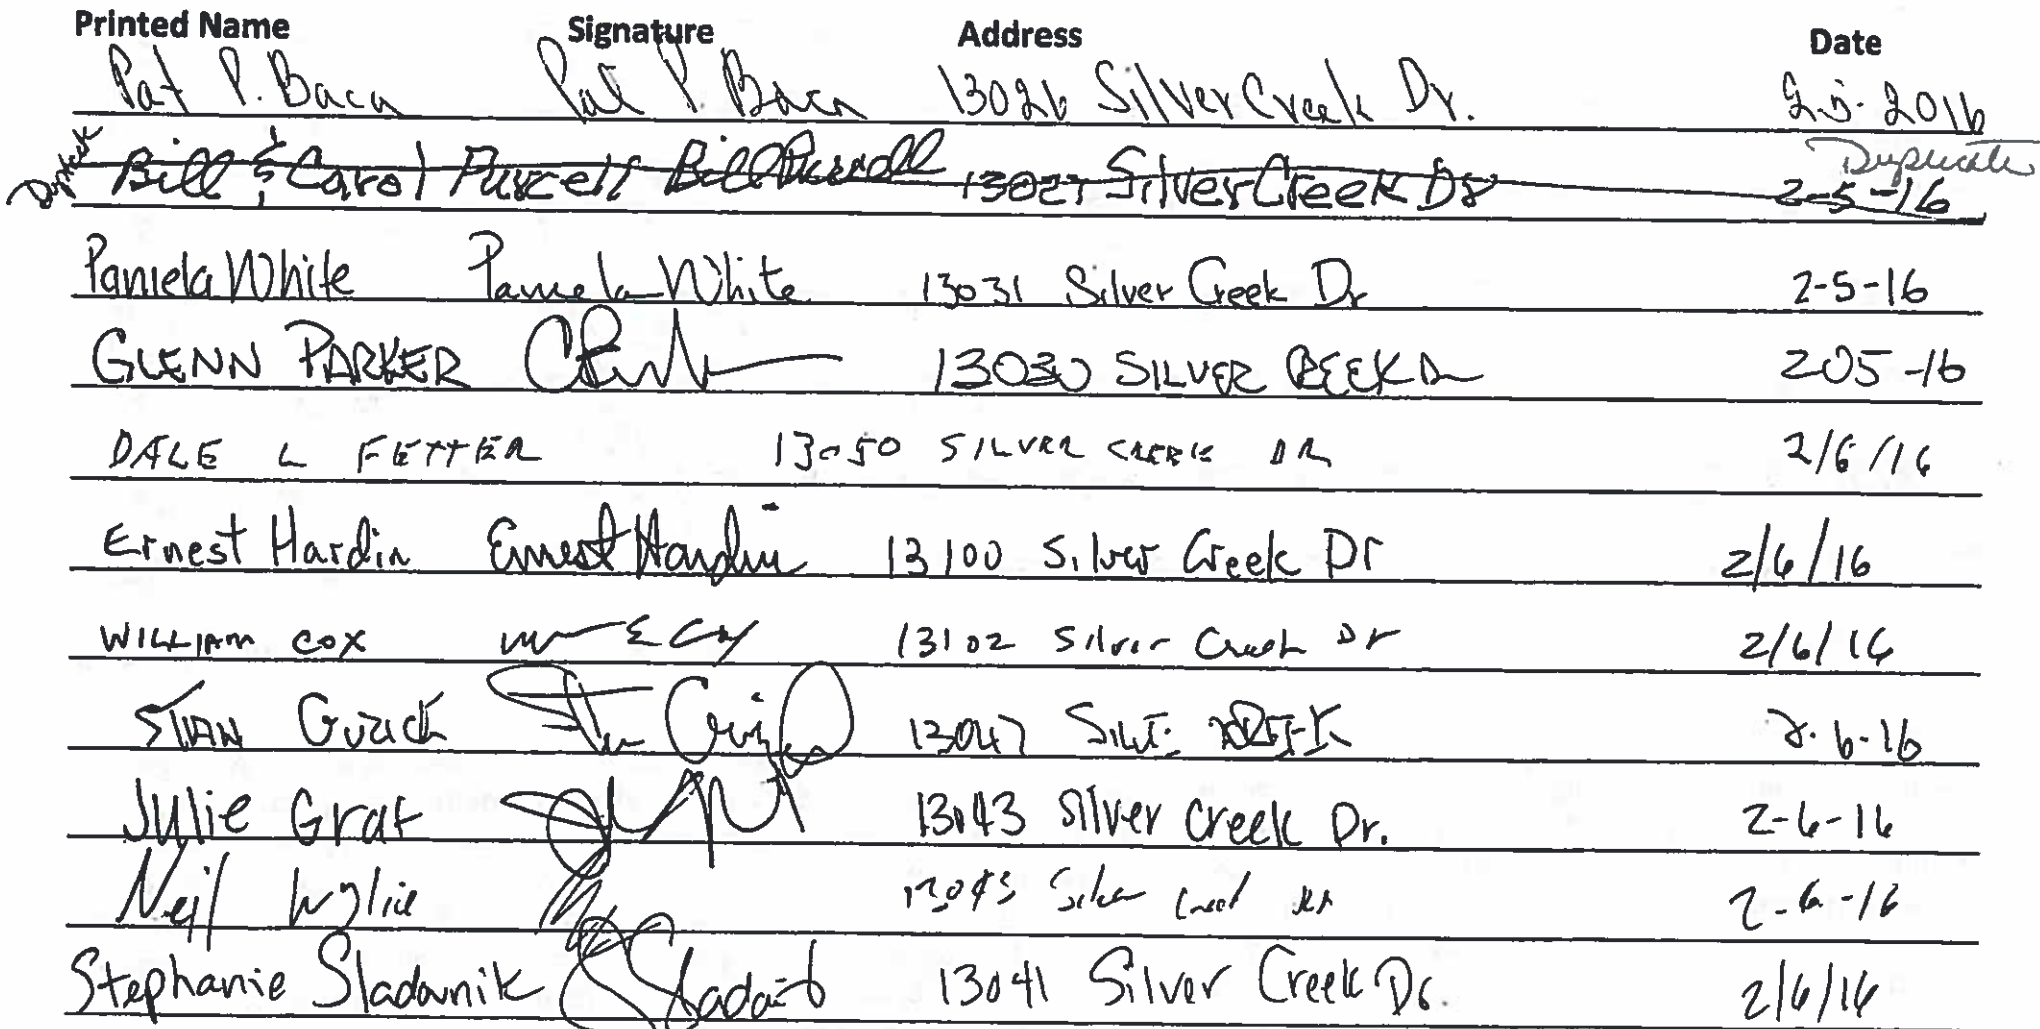 Printed Name Signature Address Date
Pat P. Baca Pat P. Baca 13026 Silver Creek Dr. 2-5-2016
Duplicate Bill & Carol Purcell Bill Purcell 13027 Silver Creek Dr 2-5-16 Duplicate
Pamela White Pamela White 13031 Silver Creek Dr 2-5-16
GLENN PARKER 13030 SILVER CREEK Dr 205-16
DALE L FETTER 13050 SILVER CREEK DR 2/6/16
Ernest Hardin Ernest Hardin 13100 Silver Creek Dr 2/6/16
WILLIAM COX 13102 Silver Creek Dr 2/6/16
STAN 13047 2-6-16
Julie Graf 13043 Silver Creek Dr. 2-6-16
Neil Wylie 13043 Silver Creek 2-6-16
Stephanie Sladovnik Sladovnik 13041 Silver Creek Dr. 2/6/16